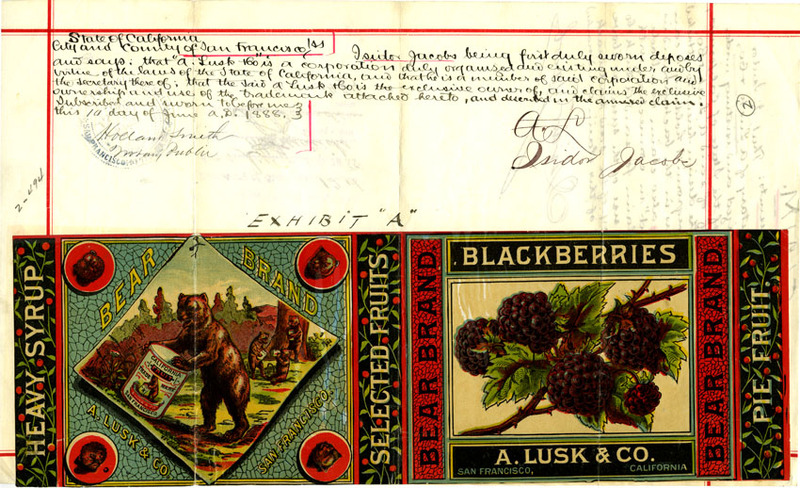 State of California
City and County of San Francisco } ss
Isidor Jacobs being first duly sworn deposes
and says: that "A. Lusk & Co" is a corporation duly organized and existing under, and by
virtue of the Laws of the State of California, and that he is a member of said corporation and
the Secretary there of; that the said A Lusk & Co is the exclusive owner of, and claims the exclusive
ownership in use of the trademark attached hereto, and described in the annexed claim.
Subscribed and sworn to before me
this 1st day of June A.D. 1888.
Holland Smith
Notary Public
A. L
Isidor Jacobs
2
2-494
EXHIBIT "A"
HEAVY SYRUP
BEAR BRAND
CALIFORNIA
A. LUSK & CO.
SAN FRANCISCO.
SELECTED FRUITS
BEAR BRAND
BLACKBERRIES
A. LUSK & CO.
SAN FRANCISCO, CALIFORNIA
BEAR BRAND
PIE FRUIT